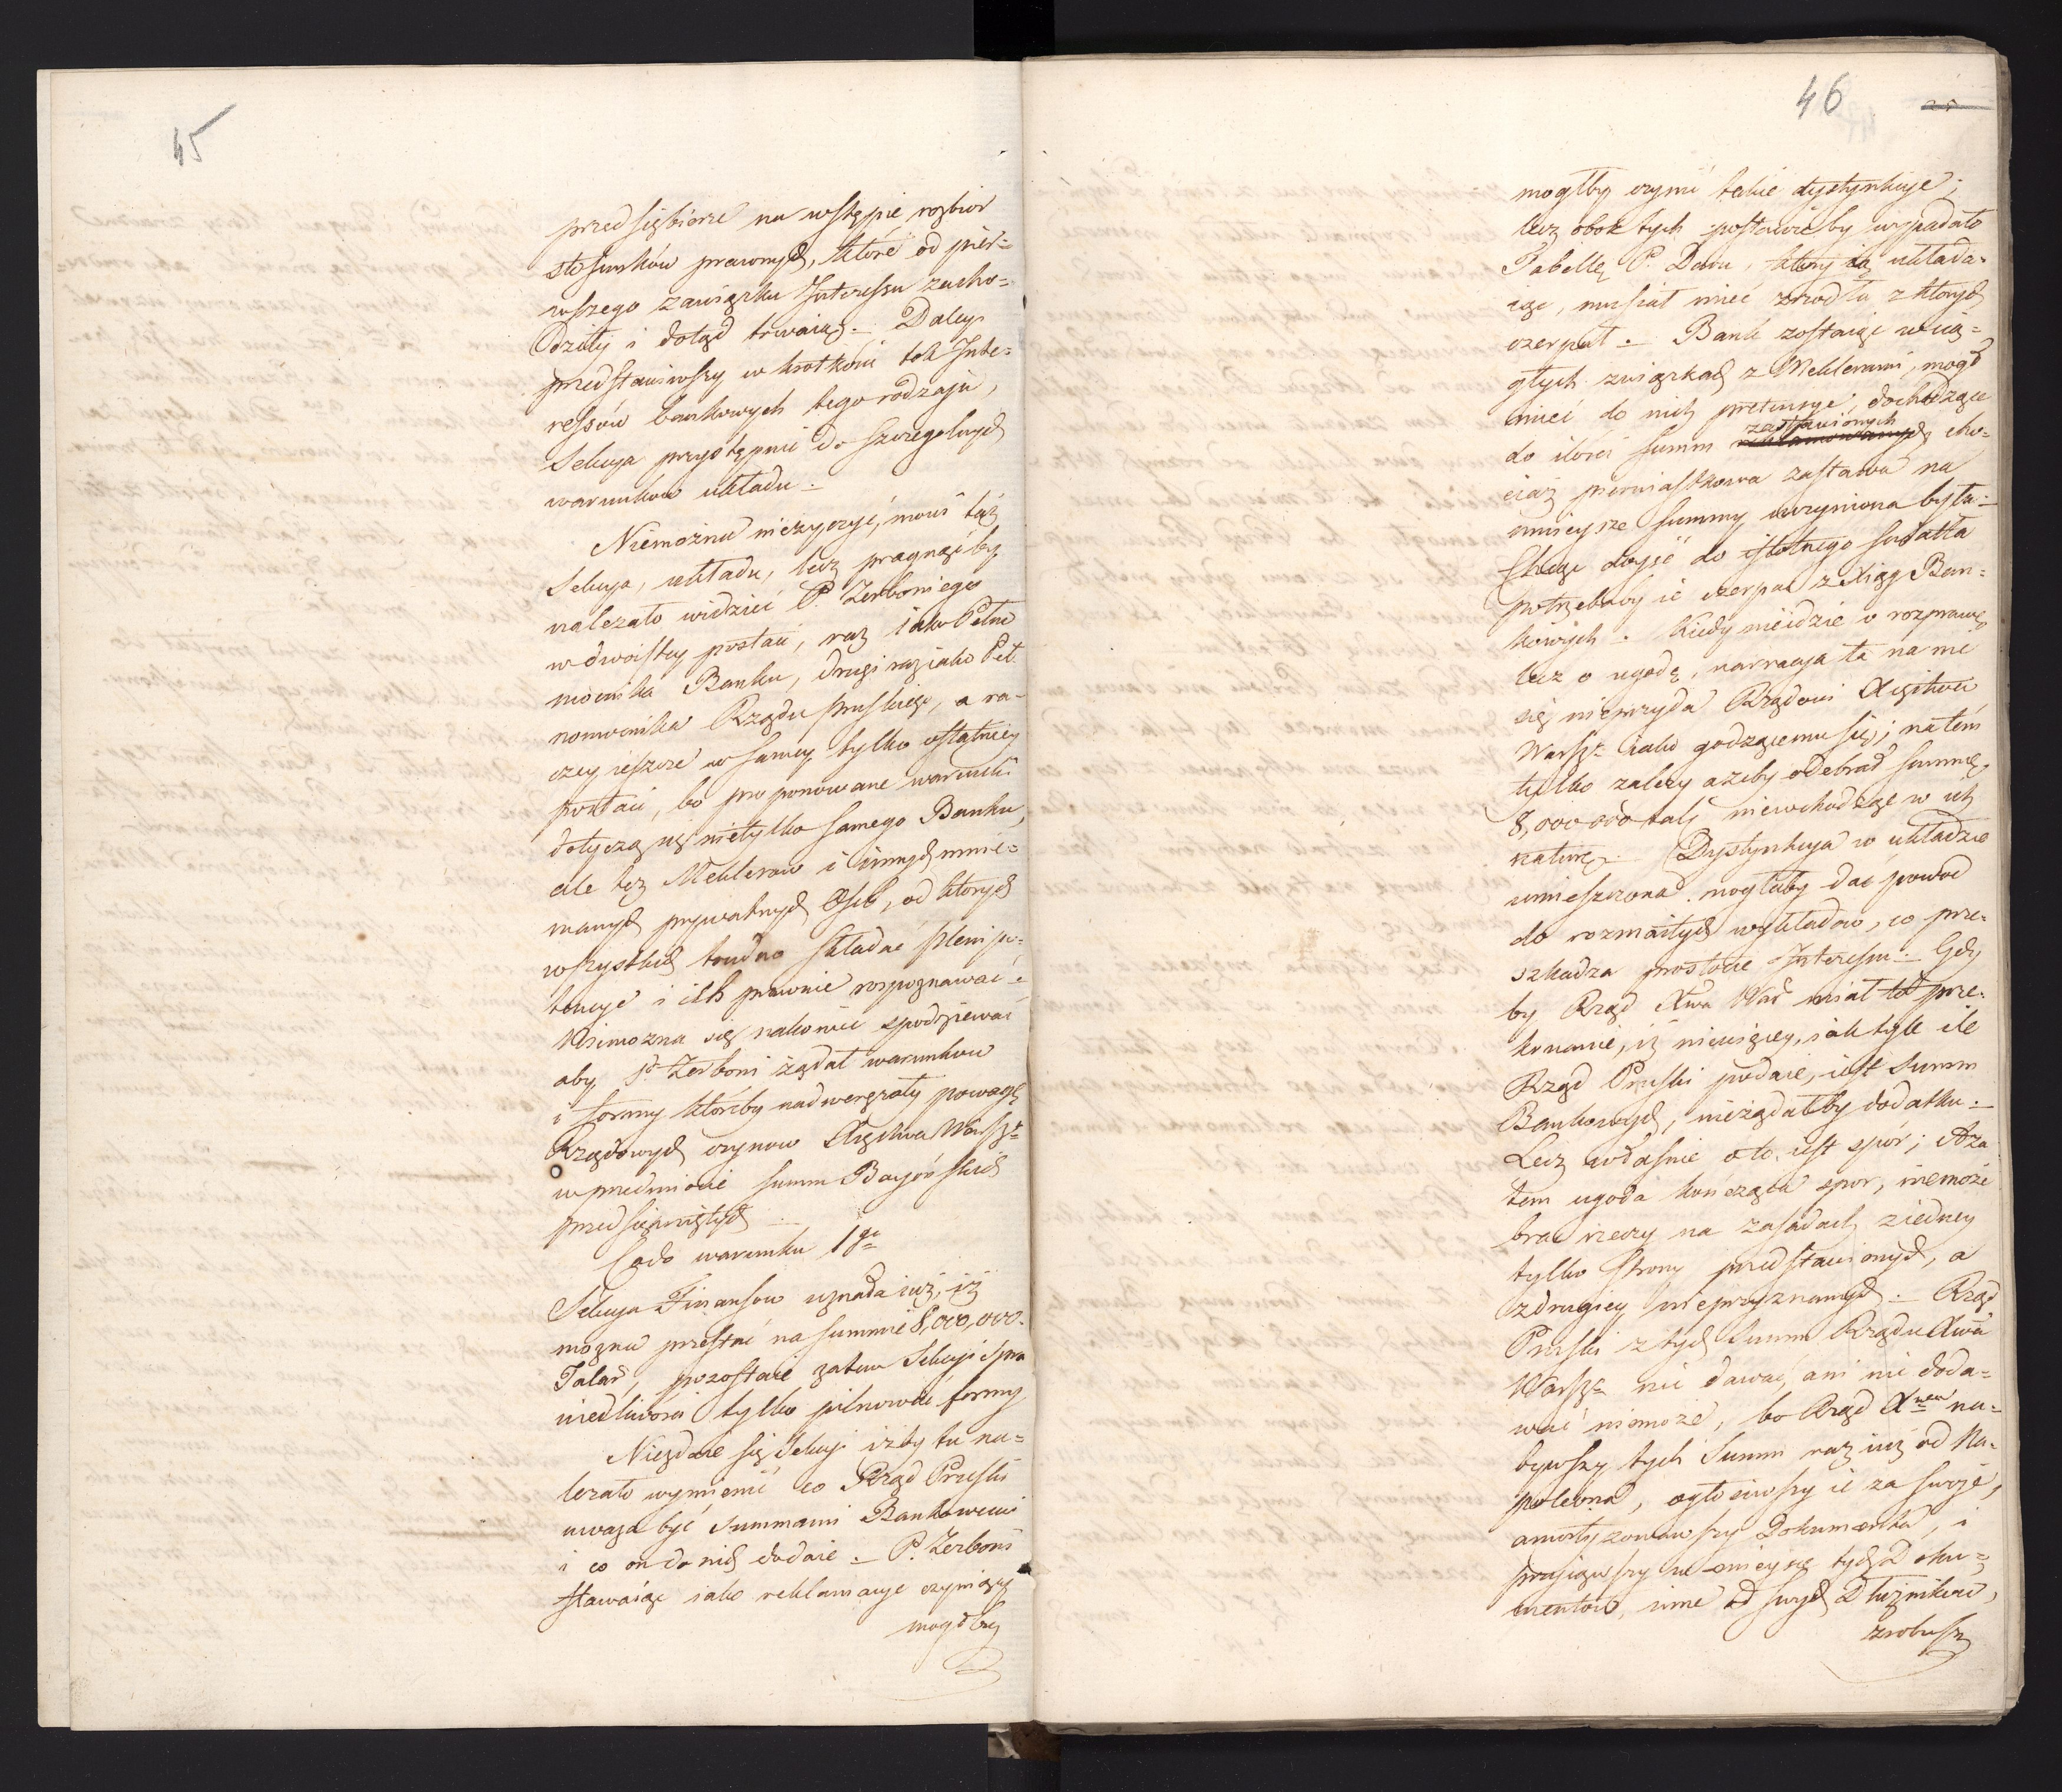 45
przedsiębierze na wstępie rozbior
stosunków prawnych, które od pier=
wszego zawiązku Interessu zacho=
dziły i dotąd trwaią. — Daley
przedstawiwszy w krotkości tok Inte=
ressów bankowych tego rodzaju,
Sekcya przystępuie do szczegolnych
warunków układu. —
Niemożna nieżyczyć, mowi taż
Sekcya, układu, lecz pragnąćby
należało widzieć P. Zerboniego
w dwoistey postaci, raz iako Pełno
mocnika Banku, drugi raz iako Peł
nomocnika Rządu Pruskiego, a ra-
czey ieszcze w samey tylko ostatniey
postaci, bo proponowane warunki
dotyczą się nietylko samego Banku,
ale też Meklerow i innych mnie=
manych prywatnych Osob, od których
wszystkich trudno składać plenipo=
tencye i ich prawnie rospoznawać. —
Niemożna się nakoniec spodziewać
aby P. Zerboni żądał warunkow
i formy któréby nadwerężały powagę
Rządowych czynow Xięstwa Warszgo
w przedmiocie summ Bayońskich
przedsięwziętych —
Co do warunku 1go
Sekcya Finansow uznała iuż, iż
można przestać na summie 8,000,000.
Talar, pozostaie zatem Sekcyi Spra
wiedliwości tylko pilnować formy
Niezdaie się Sekcyi iżby tu na=
leżało wymienić co Rząd Pruski
uważa być summami Bankowemi
i co on do nich dodaie. — P. Zerboni
stawaiąc iako reklamacye czyniący
mogłby
46
mogłby czynić takie dystynkcye;
lecz obok tych postawićby wypadało
Tabellę P. Daru, który ią układa-
iąc, musiał mieć zrzodła z których
czerpał. — Bank zostaiąc w cią=
głych związkach z Meklerami, mogł
mieć do nich pretensye, dochodzące
zastawionych
do ilości summ reklamowanych cho=
ciaż pierwiastkowa zastawa na
mnieysze summy uczyniona była. —
Chcąc doyść do istotnego swiatła
potrzebaby ie czerpać z Xiąg Ban=
kowych. Kiedy nieidzie o rozprawę
lecz o ugodę, narracya ta na nic
się nieprzyda Rządowi Xięstwa
Warszo iako godzącemu się; na tém
tylko zależy ażeby odebrał summę
8,000,000 tal; niewchodząc w ich
naturę. — Dystynkcya w układzie
umieszczona mogłaby dać powod
do rozmaitych wykładow, co prze-
szkadza prostocie Interessu. — Gdy
by Rząd Xwa War miał to prze-
konanie, iż niewięcey, iak tyle ile
Rząd Pruski podaie, iest summ
Bankowych, nieżądałby dodatku. —
Lecz właśnie o to iest spór; Aza
tem ugoda kończąca spor, niemoże
brać rzeczy na zasadach z iedney
tylko strony przedstawionych, a
z drugiey nieprzyznanych. — Rząd
Pruski z tych Summ Rządu Xwa
Warszo nic dawać, ani nic doda=
wać niemoże, bo Rząd Xtwa na=
bywszy tych Summ raz iuż od Na=
poleona, ogłosiwszy ie za swoje,
amortyzowawszy Dokumenta, i
przyiąwszy w mieysce tych Doku=
mentów, inne od swych Dłużnikow,
zrobiwszy